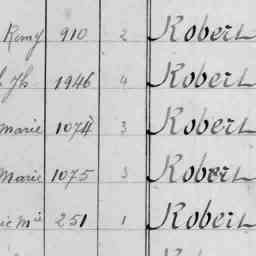 Remy 910 2 Robert
Jh 1946 4 Robert
marie 1074 3 Robert
Marie 1075 3 Robert
251 1 Robert